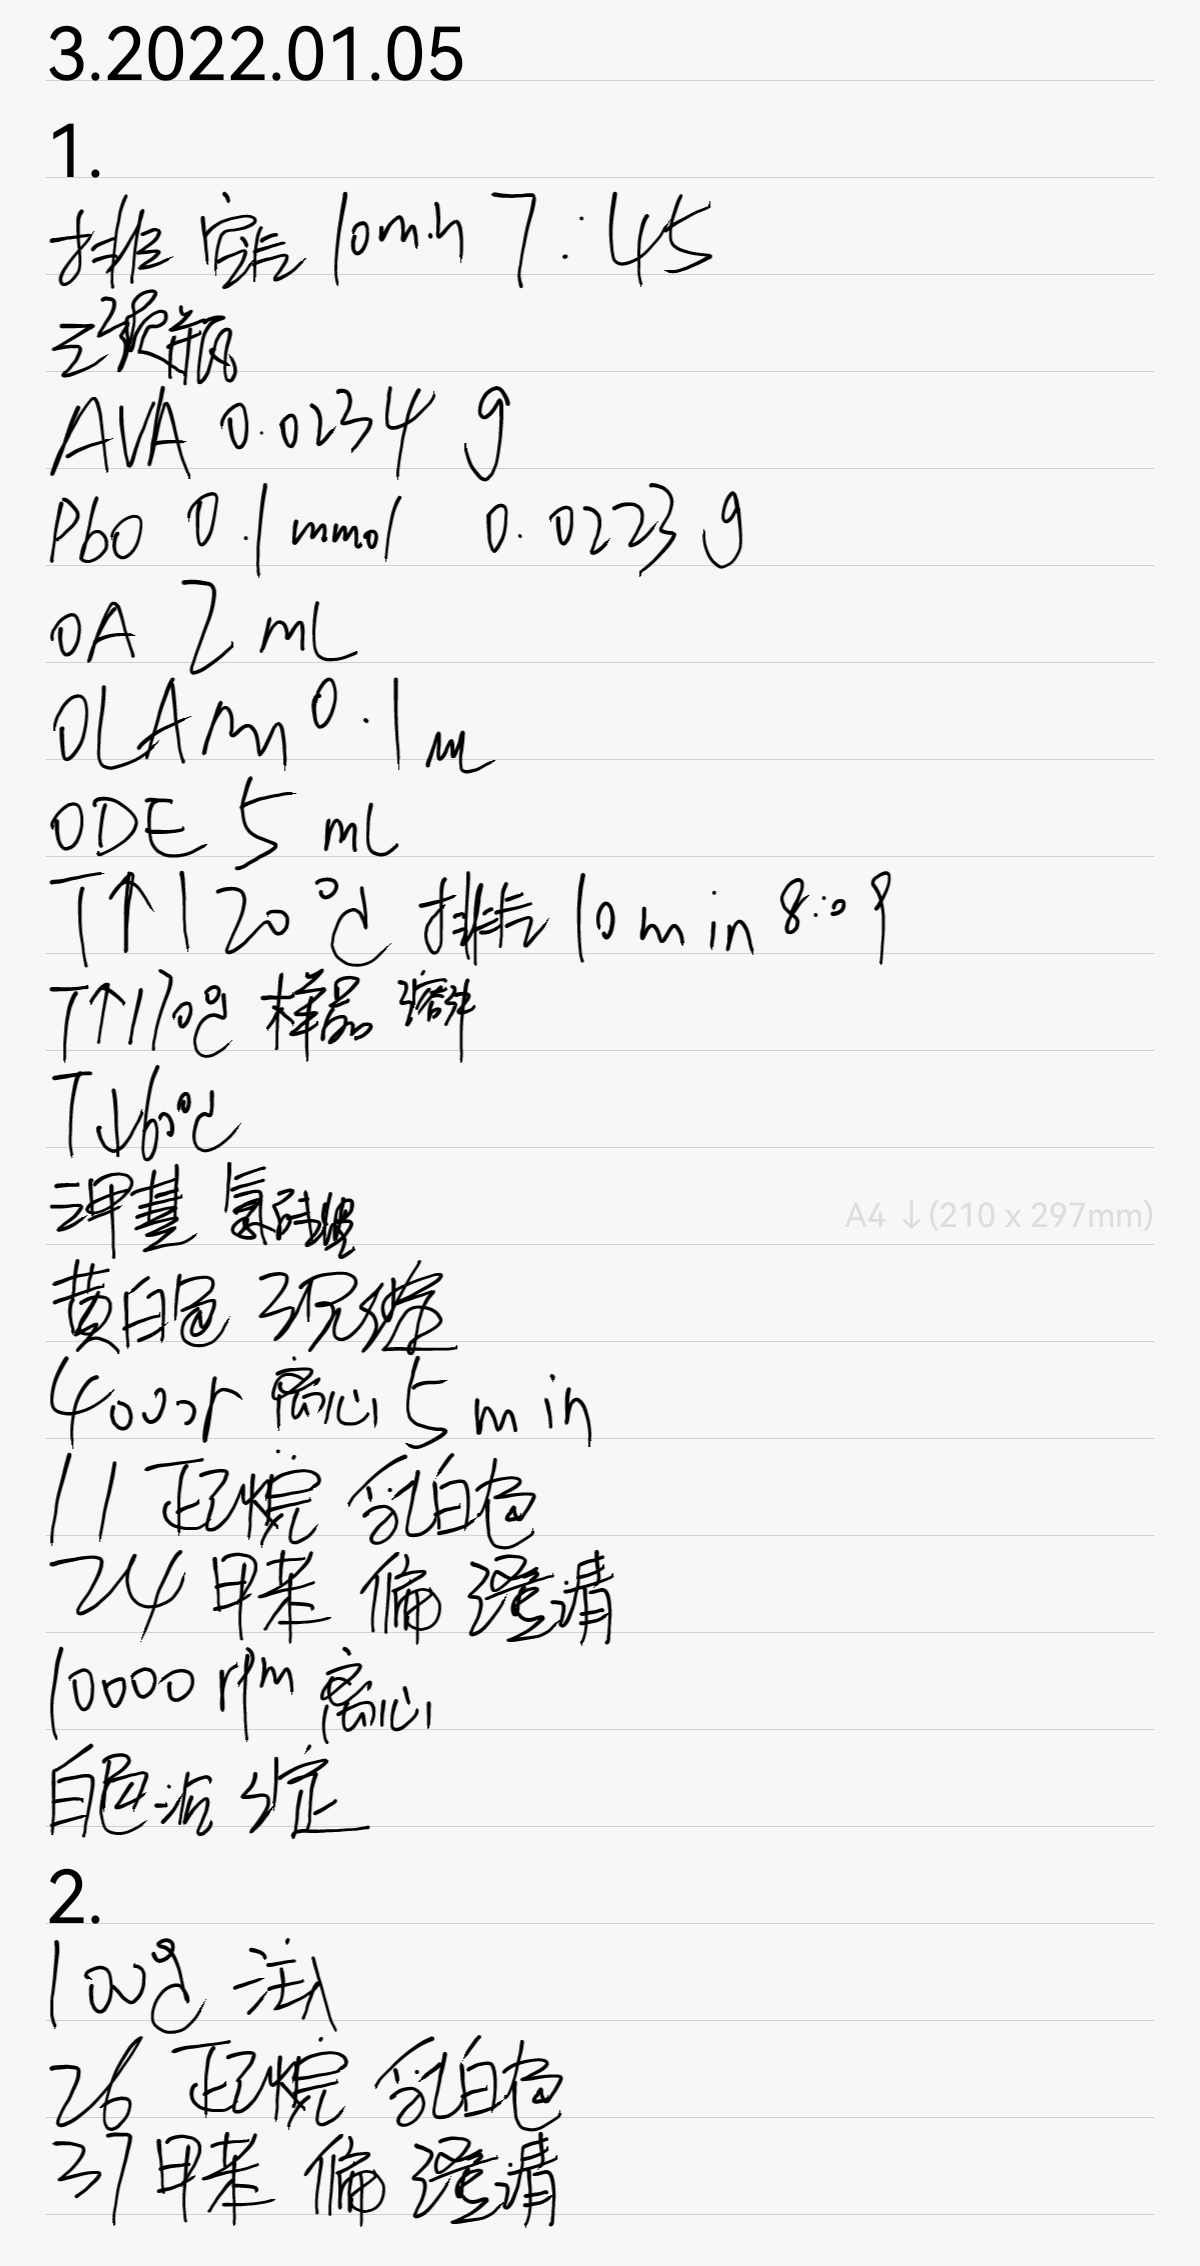 3.2022.01.05
1.
排空 10min 7:45
三颈瓶
AVA 0.0234 g
PbO 0.1 mmol 0.0223 g
OA 2 mL
OLAm 0.1 mL
ODE 5 mL
T↑120℃ 排气 10 min 8:09
T↑170℃ 样品溶解
T↓60℃
三甲基氯硅烷
黄白色沉淀
4000r 离心 5 min
11 正己烷 乳白色
24 甲苯 偏澄清
10000 rpm 离心
白色沉淀
2.
100℃ 注入
26 正己烷 乳白色
37 甲苯 偏澄清
A4 ↓(210 x 297mm)